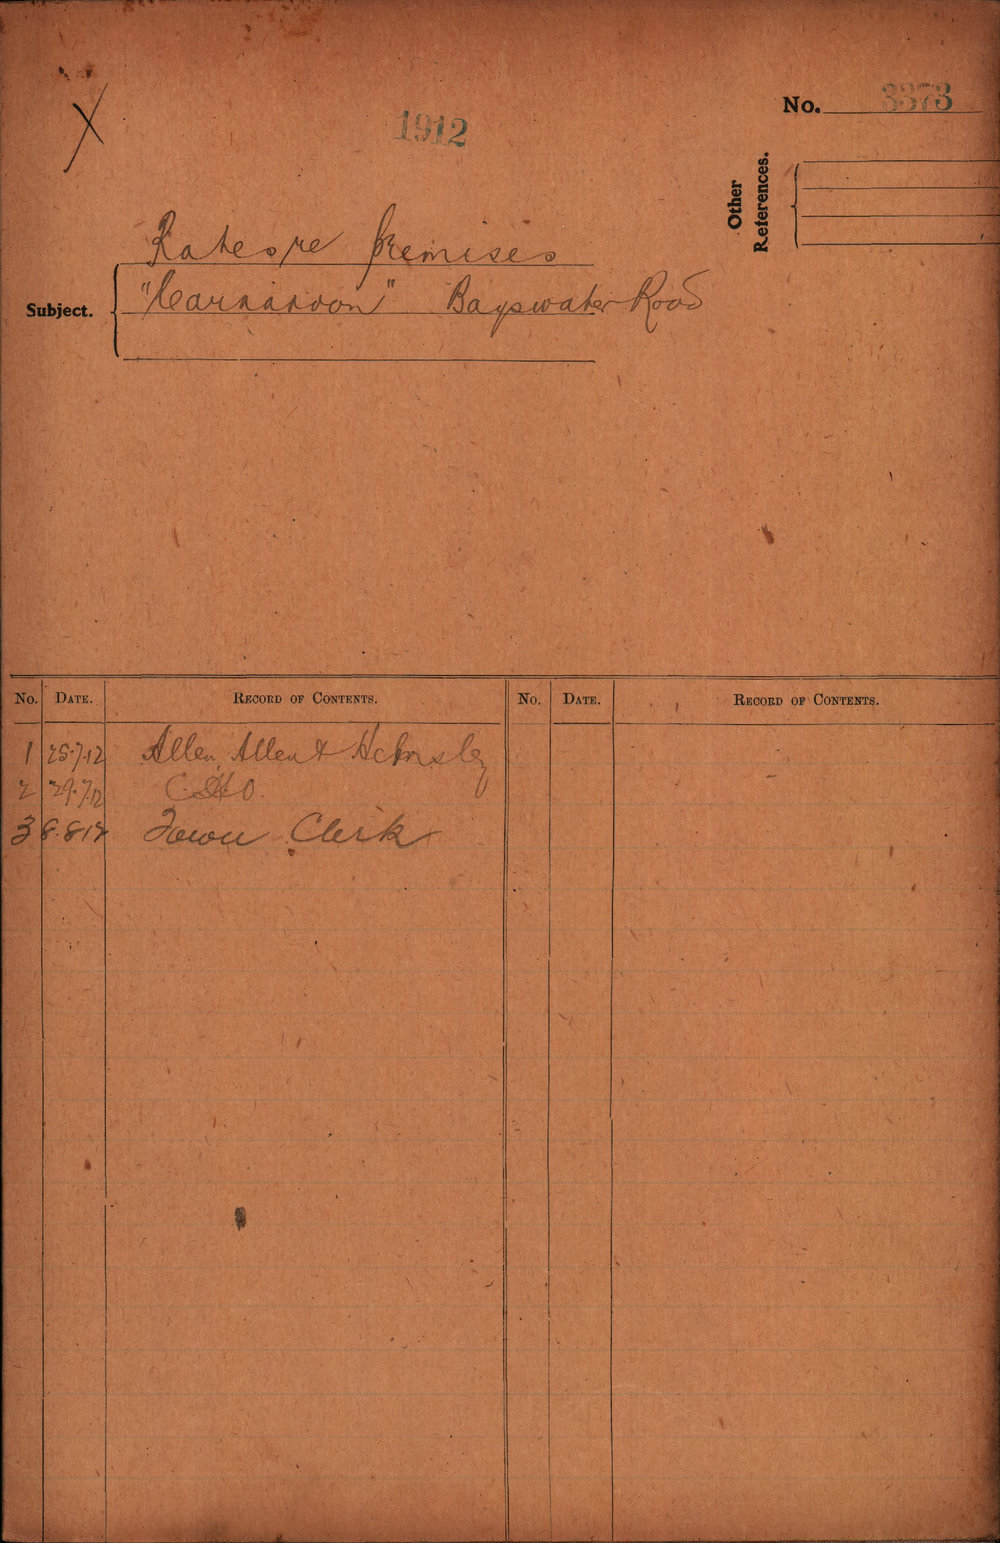 X
1912
No. 3373
Other References.
Subject.
Rates re Premises
"Carnarvon" Bayswater Road
No. DATE. RECORD OF CONTENTS. No. DATE. RECORD OF CONTENTS.
1 25.7.12 Allen, Allen & Hemsley
2 29.7.12
3 8.8.12 Town Clerk